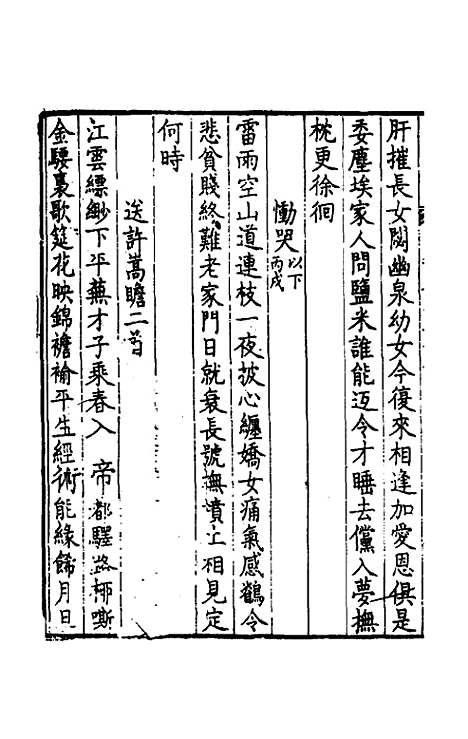 肝摧長女閟幽泉幼女今復來相逢加愛恩俱是
委塵埃家人問鹽米誰能迈令才睡去儻入夢撫
枕更徐徊
慟哭以下丙戌
雷雨空山道連枝一夜披心纏嬌女痛氣感鶺令
悲貧賤終難老家門日就衰長號撫墳土相見定
何時
送許蒿瞻二首
江雲縹緲下平蕪才子乘春入 帝都驛路桺嘶
金騕褭歌筵花映錦襜褕平生經術能緣餙月旦